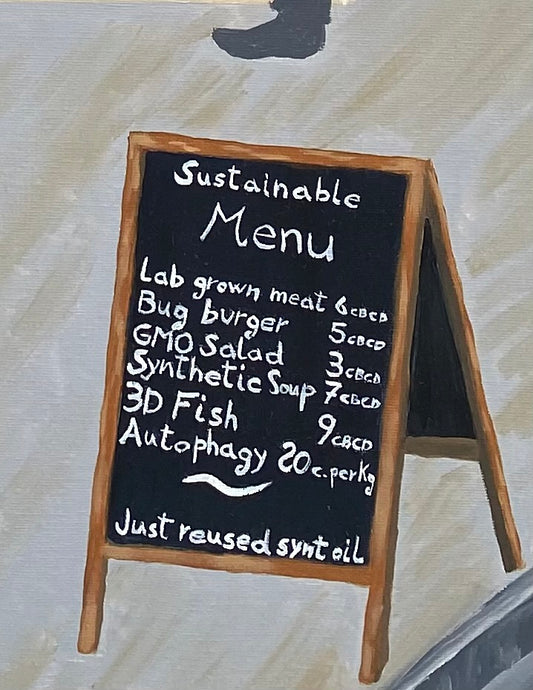 Sustainable
Menu
Lab grown meat 6 CBCD
Bug burger 5 CBCD
GMO Salad 3 CBCD
Synthetic Soup 7 CBCD
3D Fish 9 CBCD
Autophagy 20 c. per Kg
Just reused synt oil